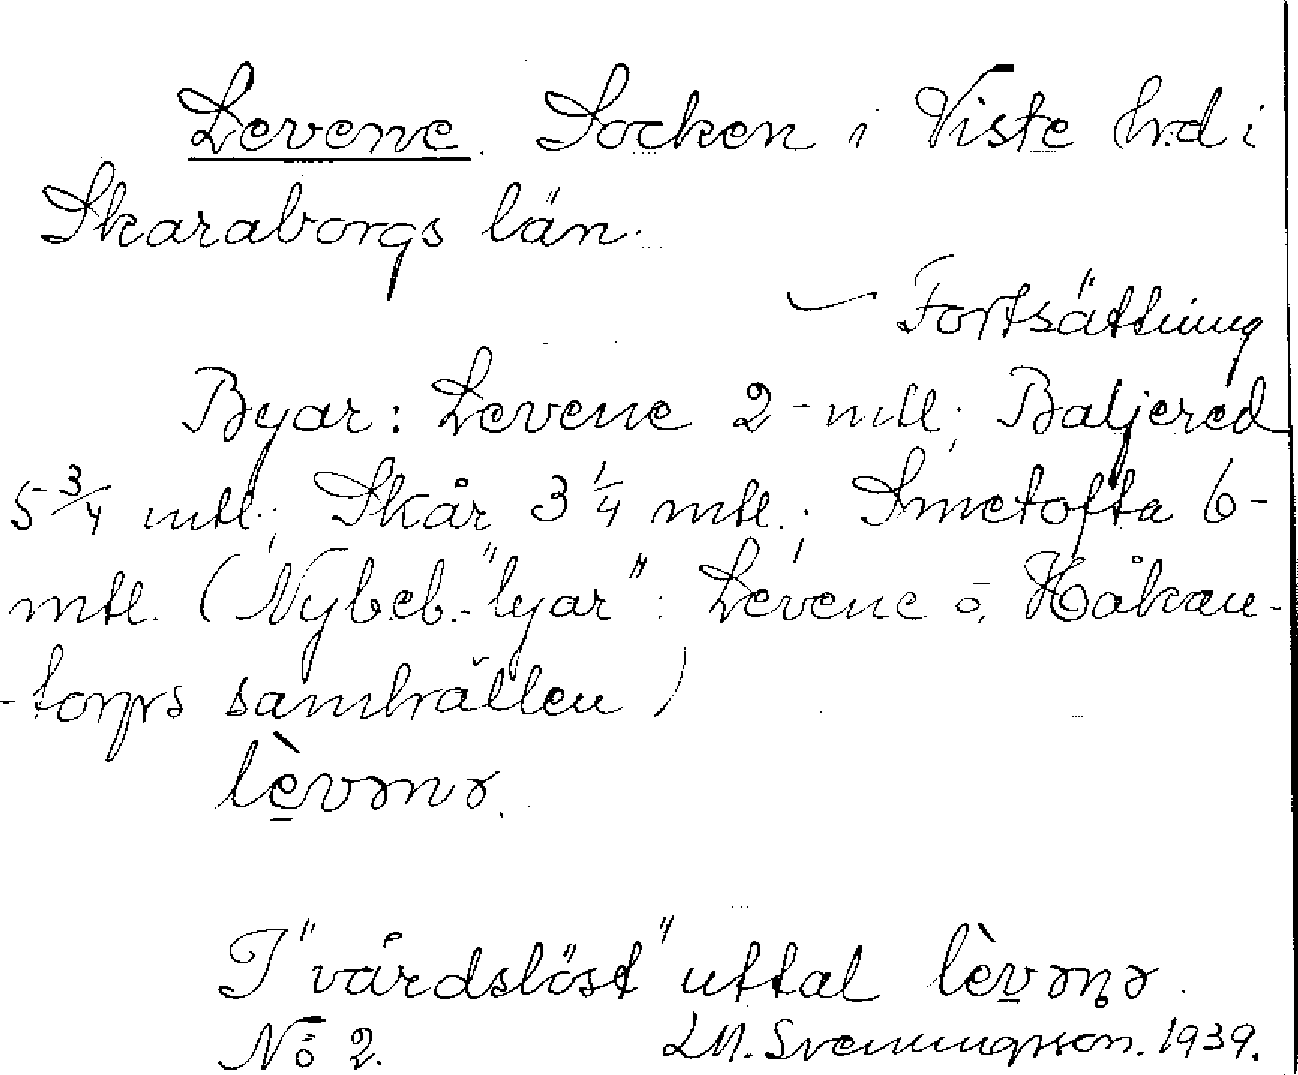 Levene. Socken i Viste hrd i
Skaraborgs län.
— Fortsättning
Byar: Levene 2 - mtl; Baljeréd
5 3/4 mtl.; Skår 3 1/4 mtl.; Smetofta 6-
mtl. (Nybeb.-"byar": Levene o. Håkan-
-torps samhällen)
lèvənə.
I "vårdslöst" uttal lèvəṇə.
No 2. L.M. Svenungsson. 1939.